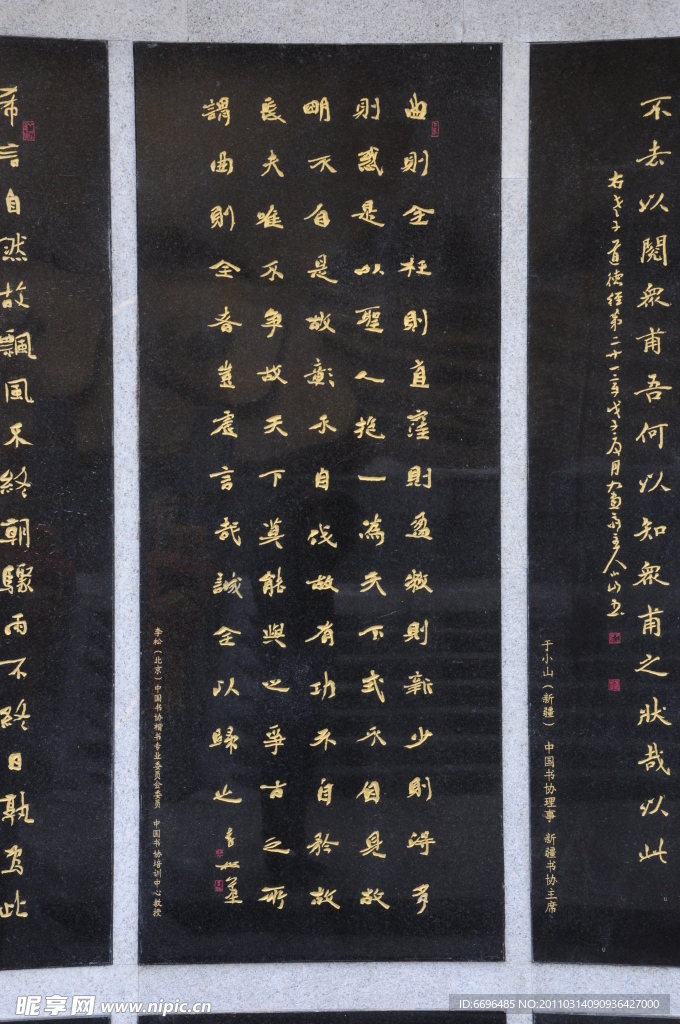 不去以閱衆甫吾何以知衆甫之狀哉以此
右老子道德經第二十一章戊子
于小山（新疆） 中国书协理事 新疆书协主席
曲則全枉則直窪則盈敝則新少則得多
則惑是以聖人抱一為天下式不自見故
明不自是故彰不自伐故有功不自矜故
長夫唯不争故天下莫能與之爭古之所
謂曲則全者豈虛言哉誠全以歸之
李松（北京）中国书协楷书专业委员会委员 中国书协培训中心教授
希言自然故飄風不終朝驟雨不終日孰為此
昵享网 www.nipic.cn
ID:6696485 NO:20110314090936427000